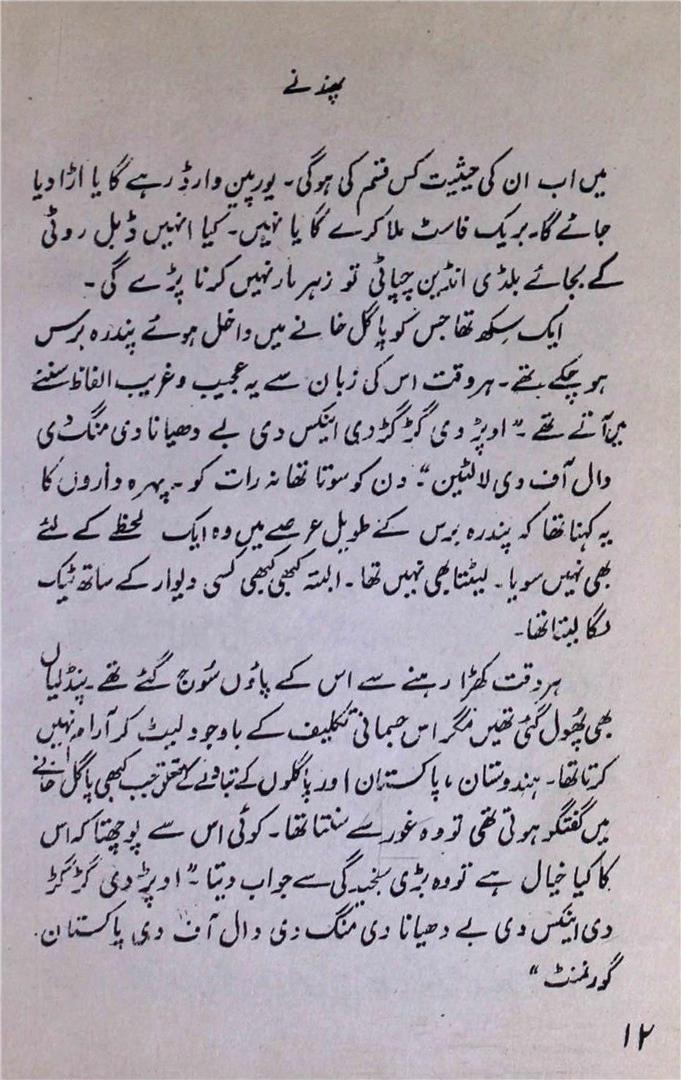 پھندنے
میں اب ان کی حیثیت کس قسم کی ہوگی۔ یورپین وارڈ رہے گا یا اڑا دیا
جائے گا۔ بریک فاسٹ ملا کرے گا یا نہیں۔ کیا انہیں ڈبل روٹی
کے بجائے بلڈی انڈین چپاتی تو زہر مار نہیں کرنا پڑے گی۔
ایک سکھ تھا جس کو پاگل خانے میں داخل ہوئے پندرہ برس
ہو چکے تھے۔ ہر وقت اس کی زبان سے یہ عجیب و غریب الفاظ سننے
میں آتے تھے۔ "اوپڑ دی گڑ گڑ دی اینکس دی بے دھیانا دی منگ دی
دال آف دی لالٹین" دن کو سوتا تھا نہ رات کو۔ پہرہ داروں کا
یہ کہنا تھا کہ پندرہ برس کے طویل عرصے میں وہ ایک لحظے کے لئے
بھی نہیں سویا۔ لیٹتا بھی نہیں تھا۔ البتہ کبھی کبھی کسی دیوار کے ساتھ ٹیک
لگا لیتا تھا۔
ہر وقت کھڑا رہنے سے اس کے پاؤں سُوج گئے تھے۔ پنڈلیاں
بھی پھُول گئی تھیں مگر اس جسمانی تکلیف کے باوجود لیٹ کر آرام نہیں
کرتا تھا۔ ہندوستان، پاکستان اور پاگلوں کے تبادلے کے متعلق جب کبھی پاگل خانے
میں گفتگو ہوتی تھی تو وہ غور سے سنتا تھا۔ کوئی اس سے پوچھتا کہ اس
کا کیا خیال ہے تو وہ بڑی سنجیدگی سے جواب دیتا۔ "اوپڑ دی گڑ گڑ
دی اینکس دی بے دھیانا دی منگ دی دال آف دی پاکستان
گورنمنٹ"
۱۲